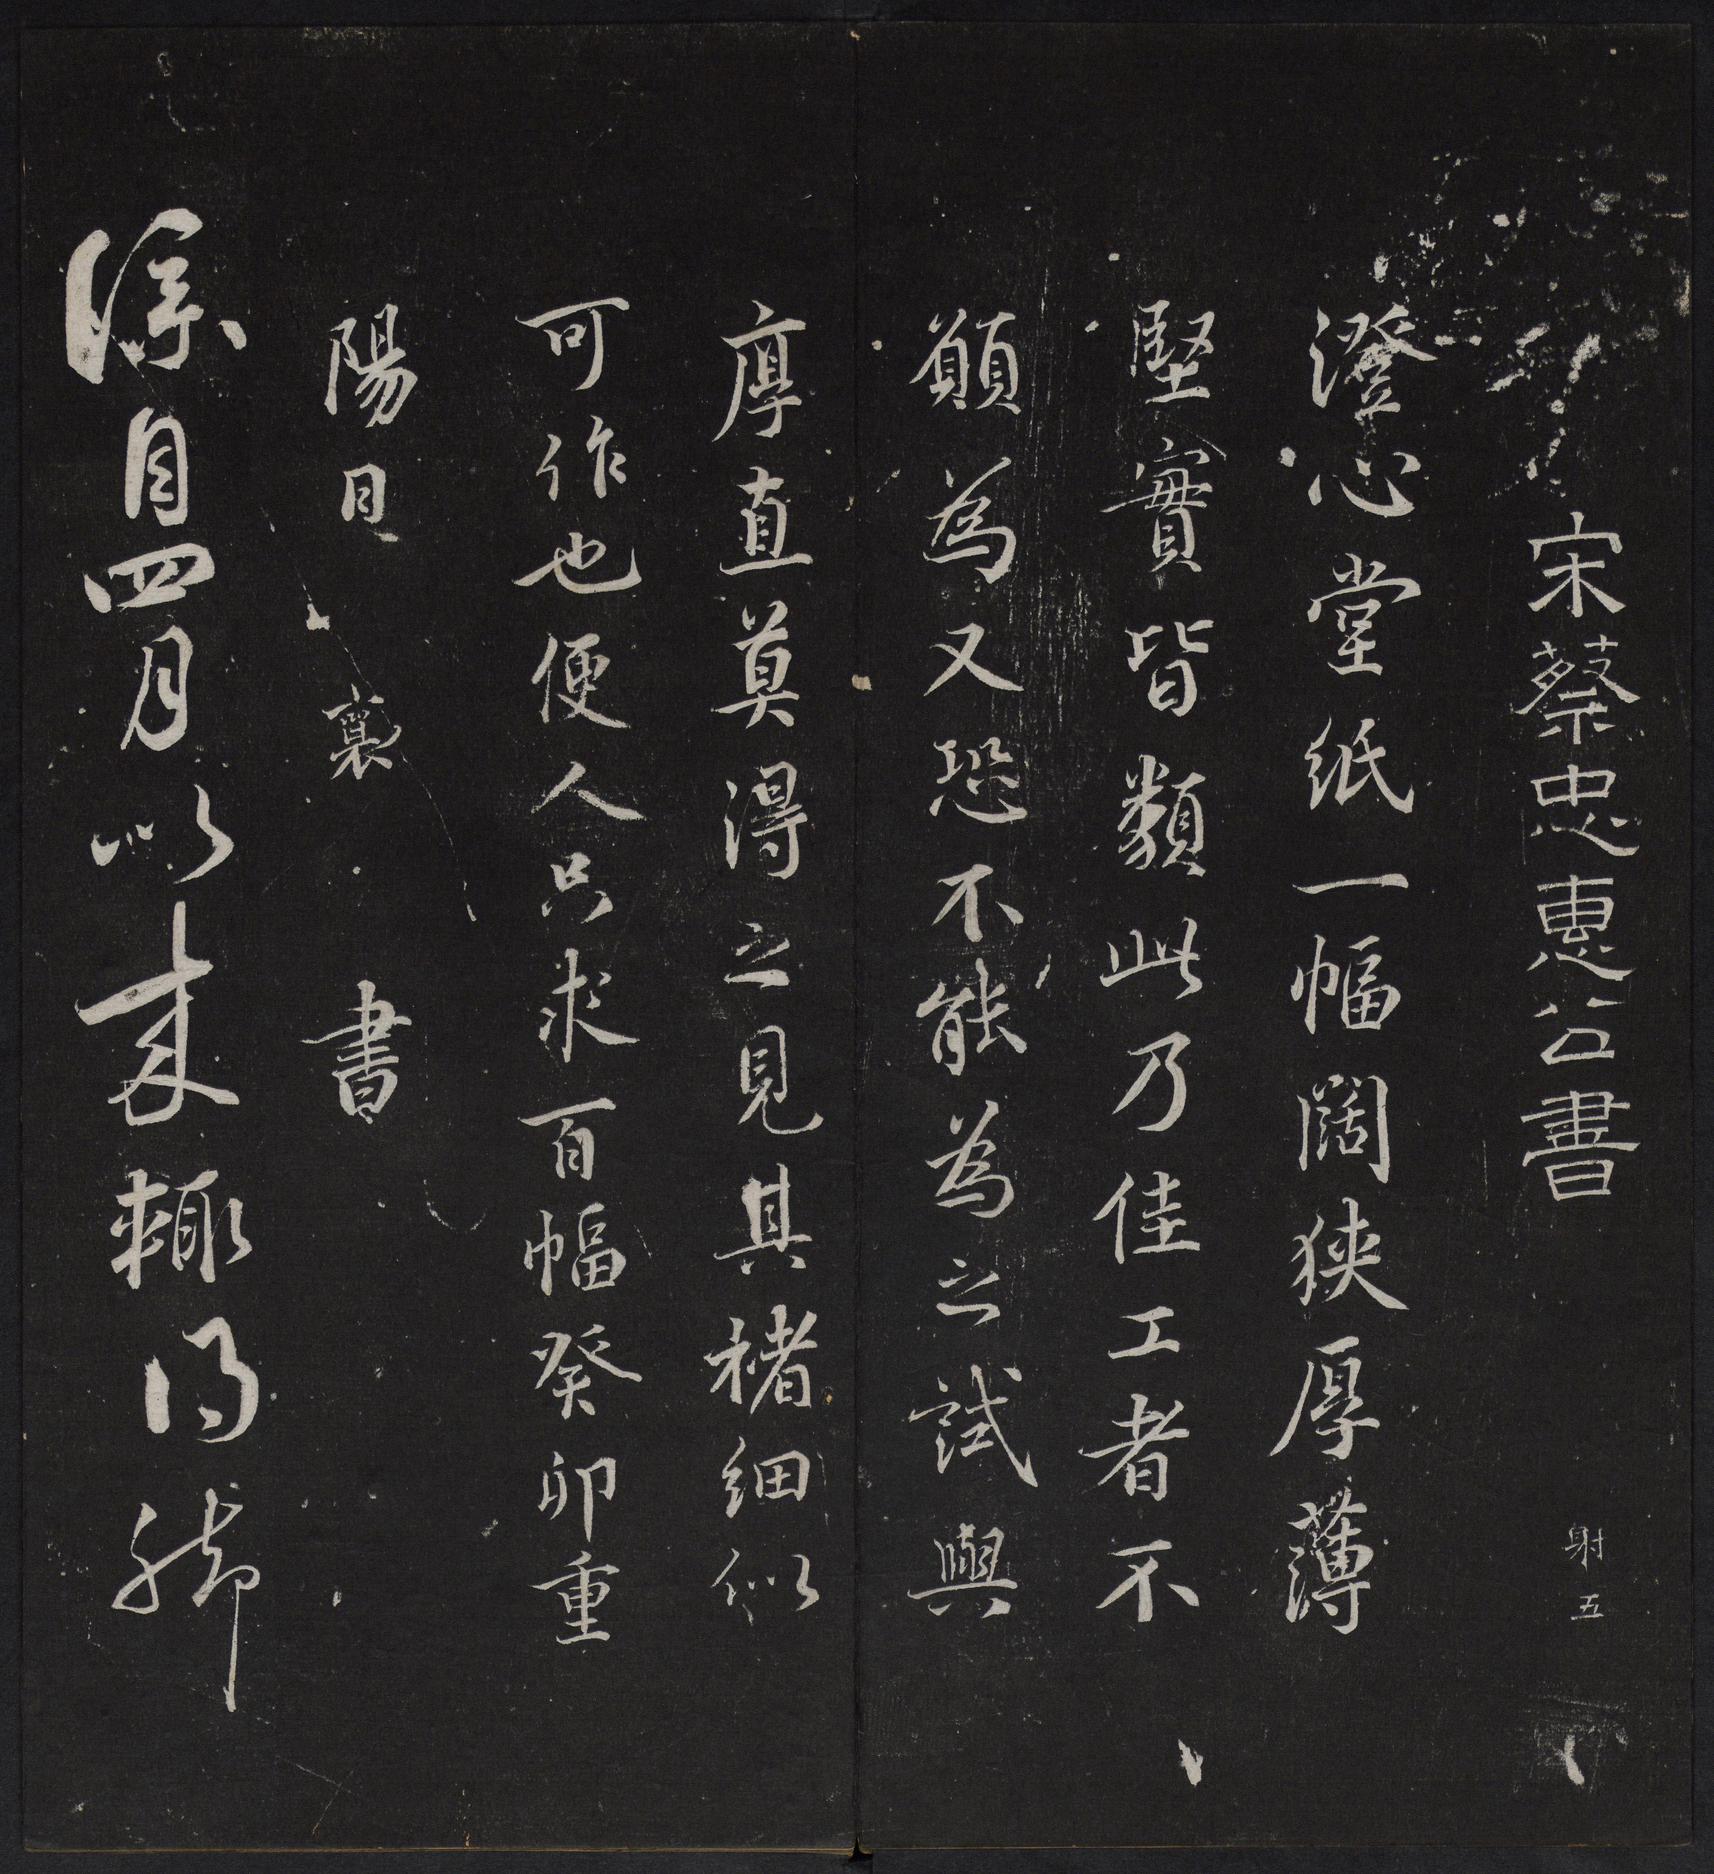 宋蔡忠惠公書
射五
澄心堂紙一幅闊狹厚薄
堅實皆類此乃佳工者不
願為又恐不能為之試與
厚直莫得之見其楮細似
可作也便人只求百幅癸卯重
陽日襄書
僕自四月以來輒得脚